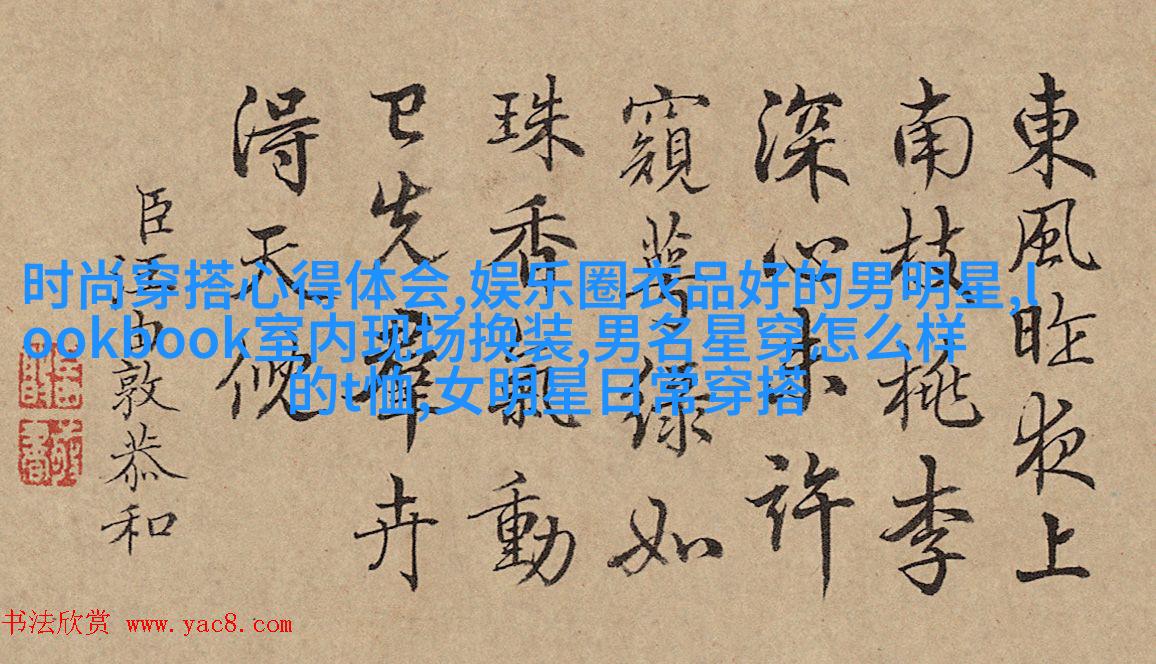 東風昨夜上
南枝桃李
深心未許
窺萼綠如
珠香氣動
已先羣卉
得天倪
臣汪由敦恭和
时尚穿搭心得体会,娱乐圈衣品好的男明星,l
ookbook室内现场换装,男名星穿怎么样
的t恤,女明星日常穿搭
书法欣赏 www.yac8.com